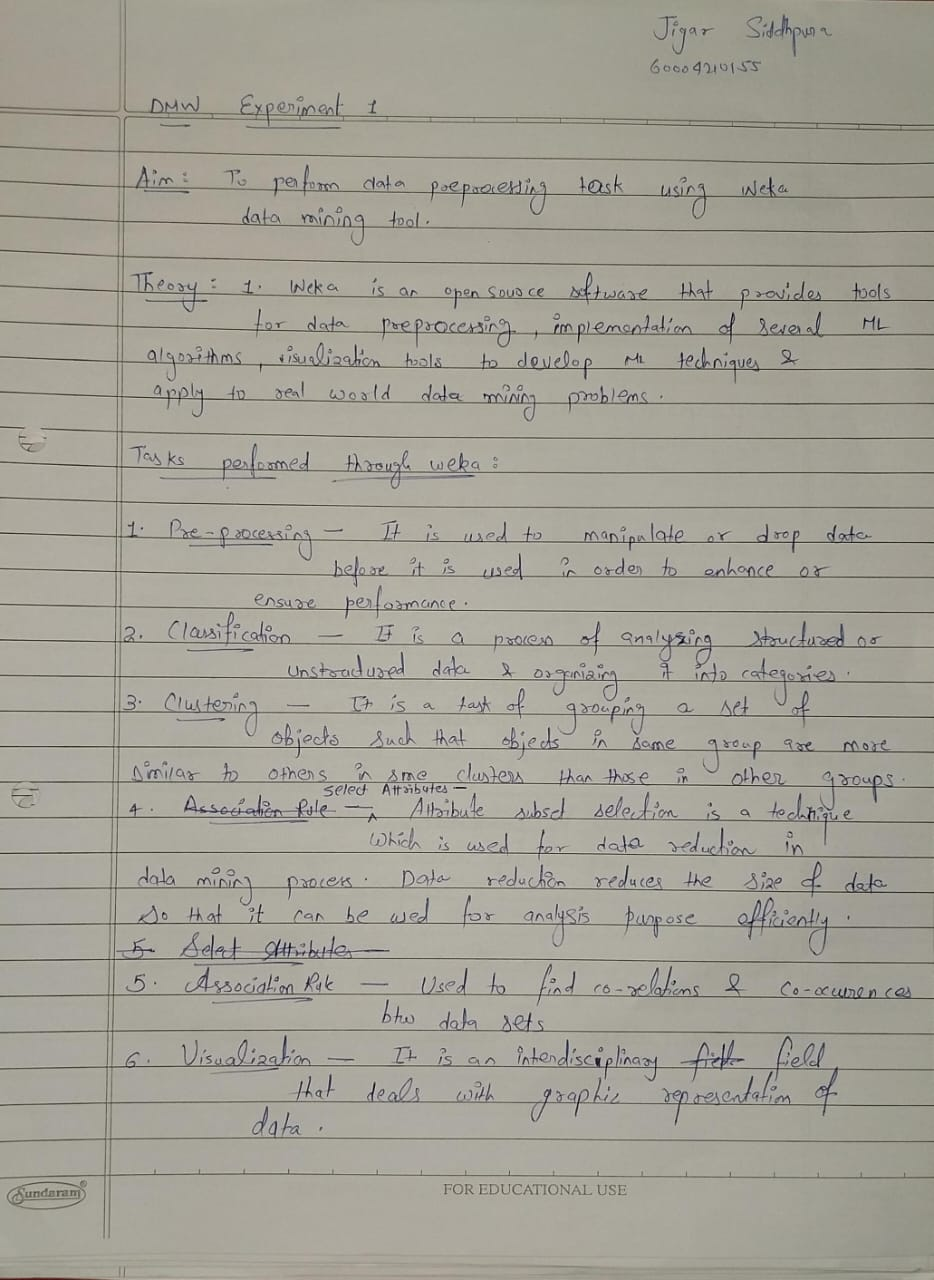 Jigar Siddhpura
60004210155
DMW Experiment 1
Aim: To perform data preprocessing task using Weka
data mining tool.
Theory: 1. Weka is an open source software that provides tools
for data preprocessing, implementation of several ML
algorithms, visualization tools to develop ML techniques &
apply to real world data mining problems.
Tasks performed through weka:
1. Pre-processing - It is used to manipulate or drop data
before it is used in order to enhance or
ensure performance.
2. Classification - It is a process of analyzing structured or
unstructured data & organizing it into categories.
3. Clustering - It is a task of grouping a set of
objects such that objects in same group are more
similar to others in sme clusters than those in other groups.
Select Attributes -
4. Association Rule - Attribute subset selection is a technique
which is used for data reduction in
data mining process. Data reduction reduces the size of data
so that it can be used for analysis purpose efficiently.
5 Select Attributes -
5. Association Rule - Used to find co-relations & co-ocurences
btw data sets
6. Visualization - It is an interdisciplinary field
that deals with graphic representation of
data.
Sundaram®
FOR EDUCATIONAL USE